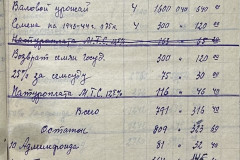 Валовой урожай Ч 1600 640 640
Семена на 1943-44г. 175к 300 • 120
Натуроплата М.Т.С.
Возврат семян госуд. 300 • 120
25% за семссуду 75 • 30
Натуроплата М.Т.С. 12,5% 116 • 46
Всего 791 • 316
Остаток 809 • 323
81 • 32